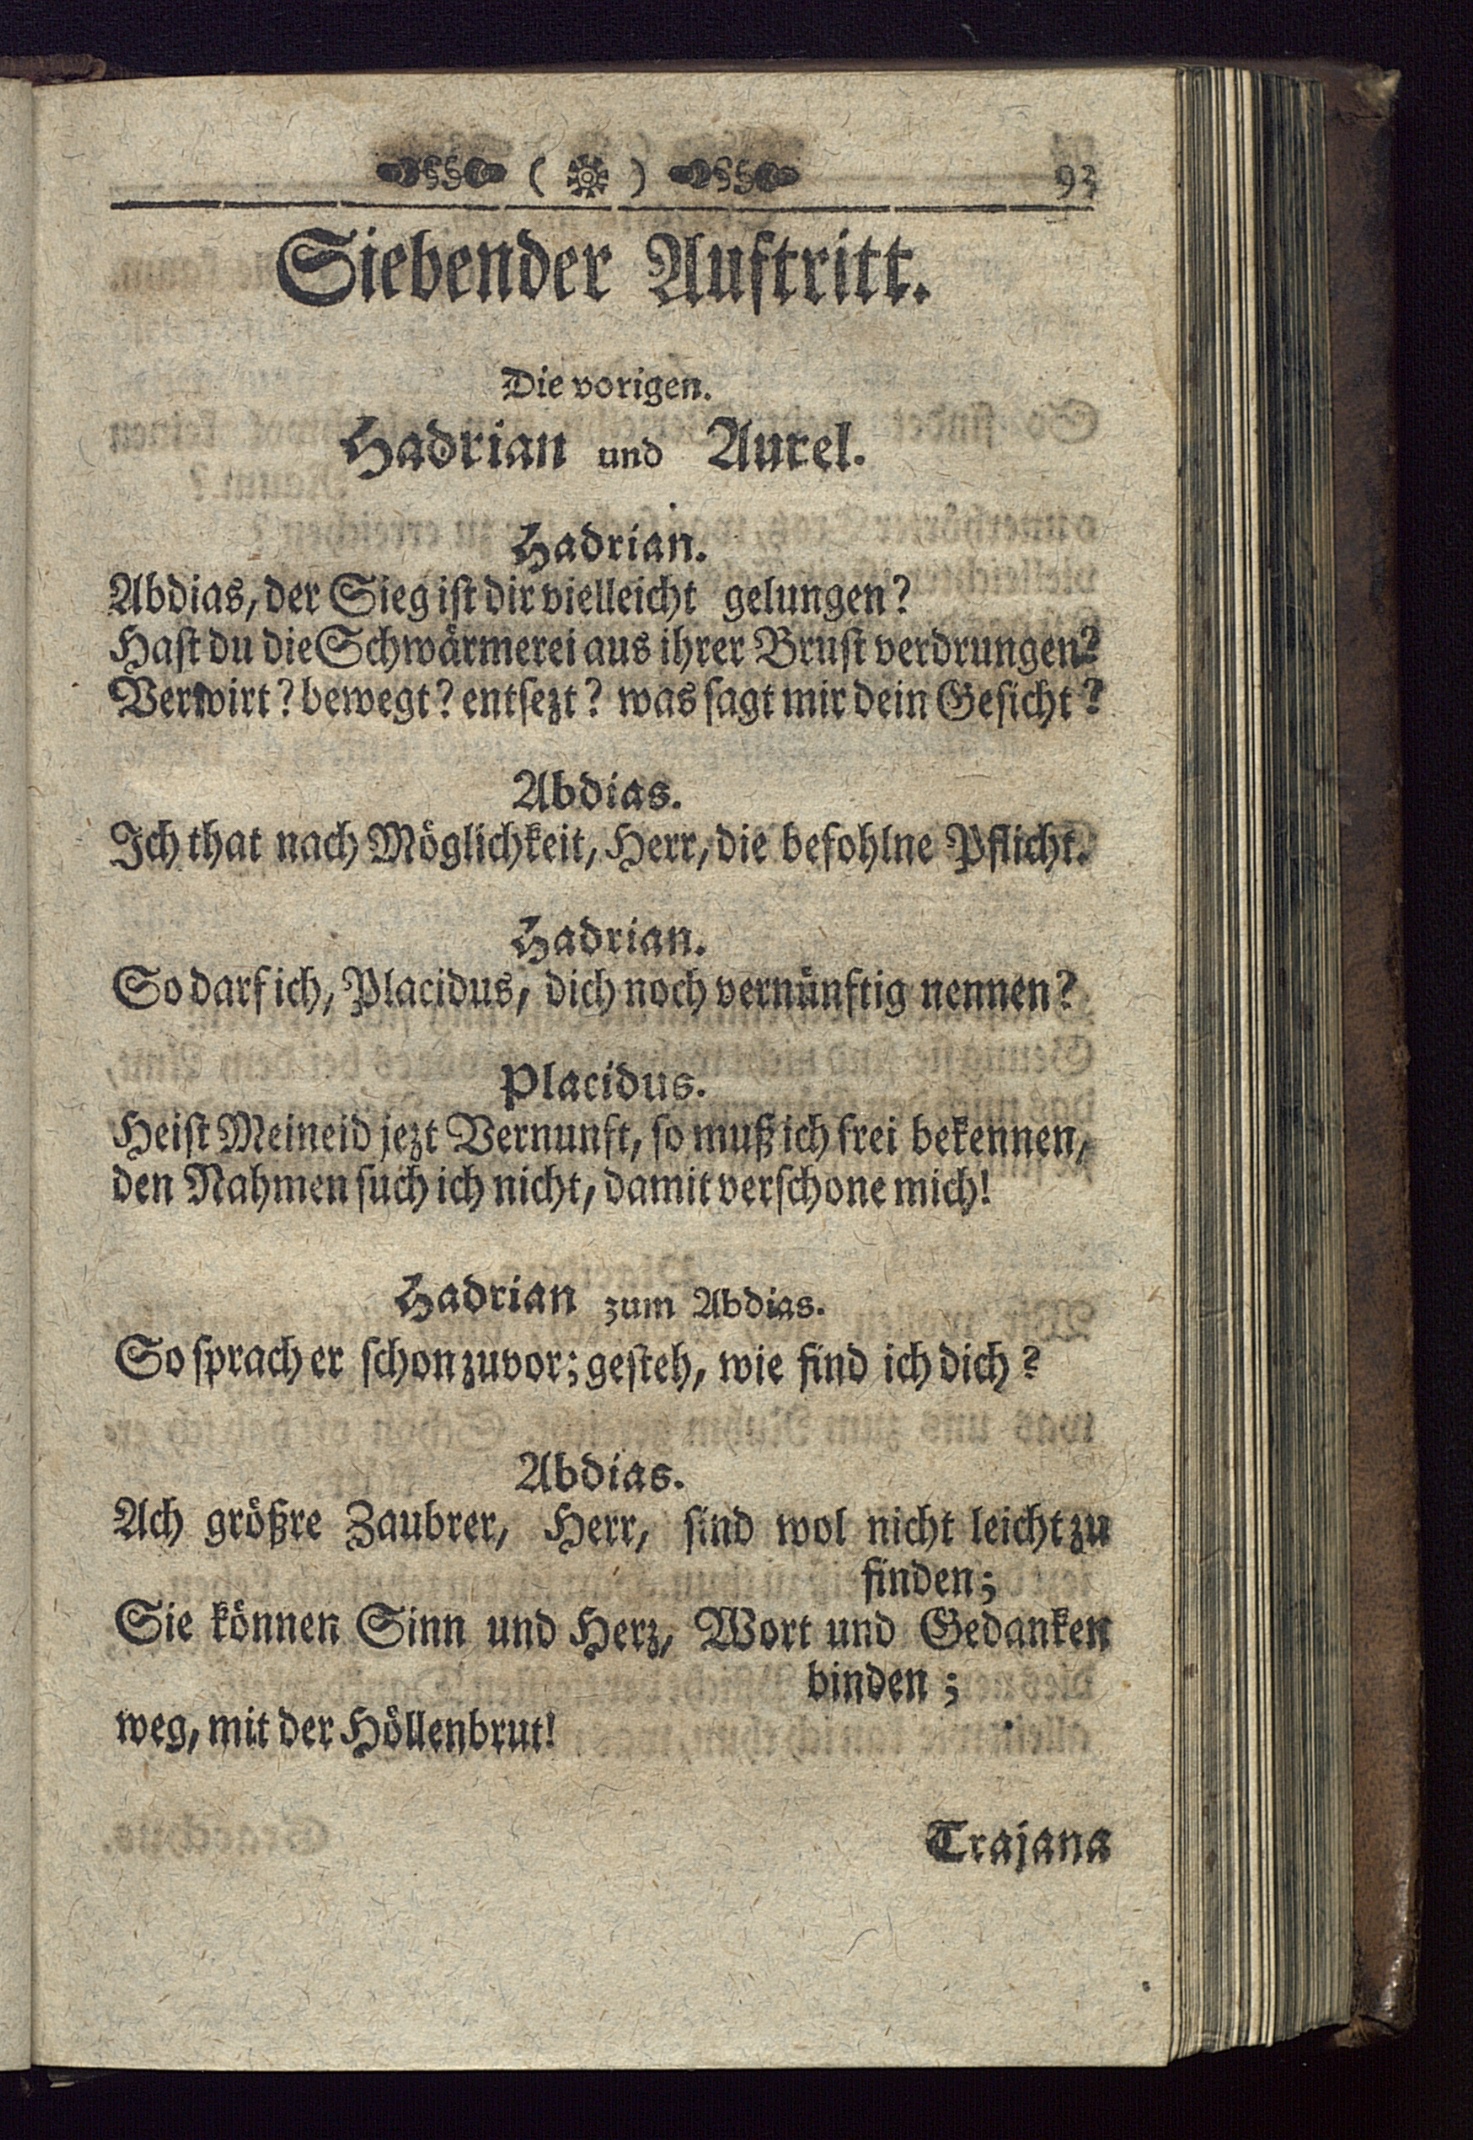 ( ) 93
Siebender Auftritt.
Die vorigen.
Hadrian und Aurel.
Hadrian.
Abdias, der Sieg ist dir vielleicht gelungen?
Hast du die Schwärmerei aus ihrer Brust verdrungen?
Verwirt? bewegt? entsezt? was sagt mir dein Gesicht?
Abdias.
Ich that nach Möglichkeit, Herr, die befohlne Pflicht.
Hadrian.
So darf ich, Placidus, dich noch vernünftig nennen?
Placidus.
Heist Meineid jezt Vernunft, so muß ich frei bekennen,
den Nahmen such ich nicht, damit verschone mich!
Hadrian zum Abdias.
So sprach er schon zuvor; gesteh, wie find ich dich?
Abdias.
Ach größre Zaubrer, Herr, sind wol nicht leicht zu
finden;
Sie können Sinn und Herz, Wort und Gedanken
binden;
weg, mit der Höllenbrut!
Trajana